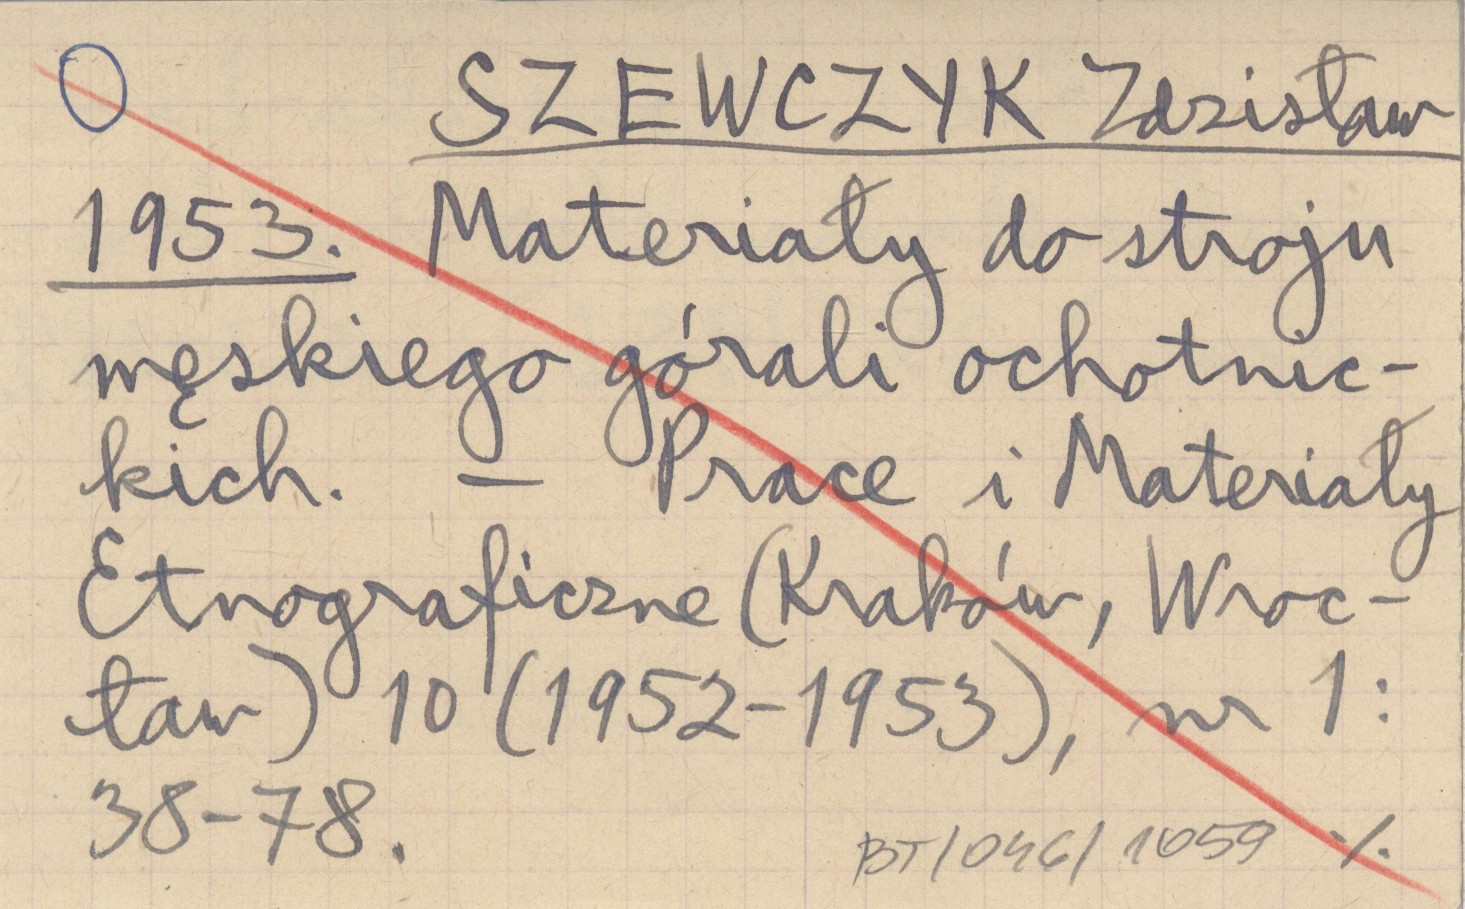 SZEWCZYK Zdzisław
1953. Materiały do stroju
męskiego górali ochotnic-
kich. — Prace i Materiały
Etnograficzne (Kraków, Wroc-
ław) 10 (1952-1953), nr 1:
38-78.
BT/046/1059 ./.